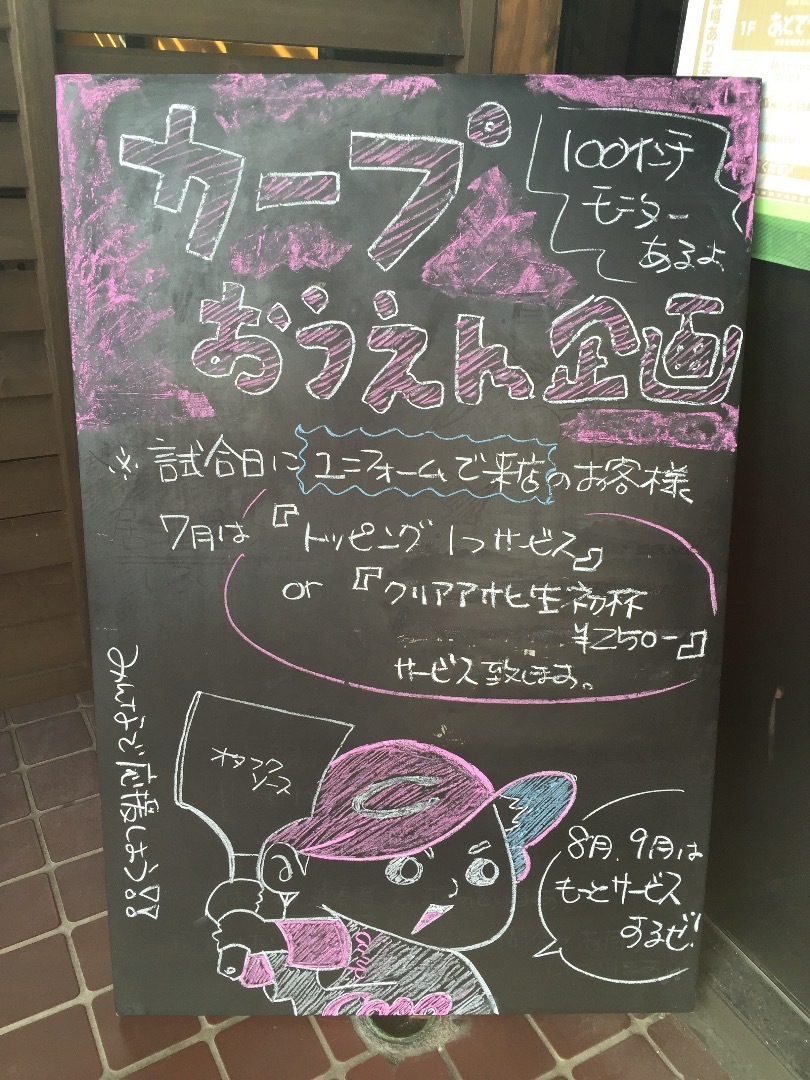 カープ
おうえん企画
100インチ
モニター
あるよ
※試合日にユニフォームで来店のお客様
7月は『トッピング1つサービス』
or『クリアアサヒ生初杯
¥250-』
サービス致します。
みんなで応援しよう!!
オタフク
ソース
C
Carp
8月、9月は
もっとサービス
するぜ!
1F